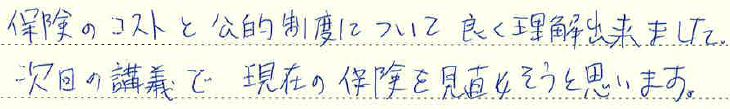 保険のコストと公的制度について良く理解出来ました。
次回の講義で 現在の保険を見直そうと思います。